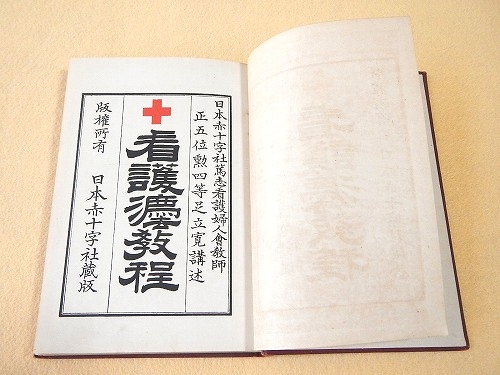 日本赤十字社篤志看護婦人會教師
正五位勲四等足立寛講述
看護灋教程
版權所有
日本赤十字社蔵版